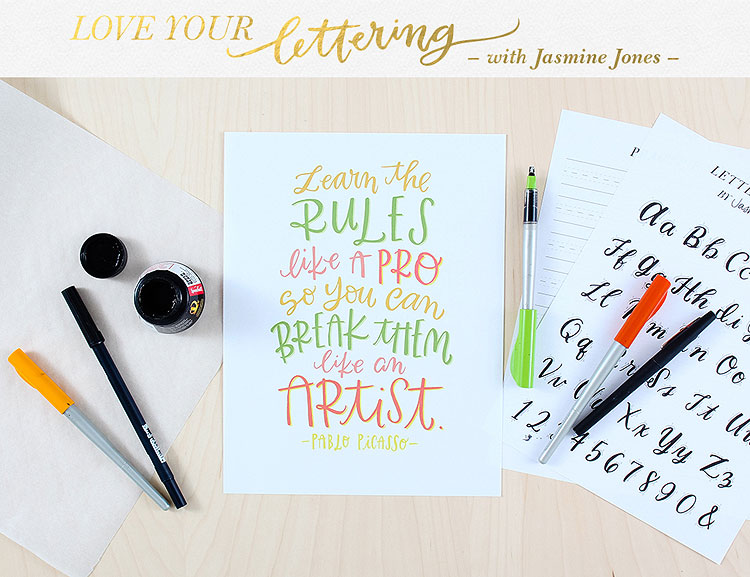 LOVE YOUR lettering
– with Jasmine Jones –
Learn the
RULES
like A PRO
so you can
BREAK THEM
like an
ARTIST.
–PABLO PICASSO–
LETTE
BY Jas
Aa Bb Cc
Ff Gg Hh
Ll Mm
Qq
Vv
Xx Yy Zz
1 2 3 4 5 6 7 8 9 0 &